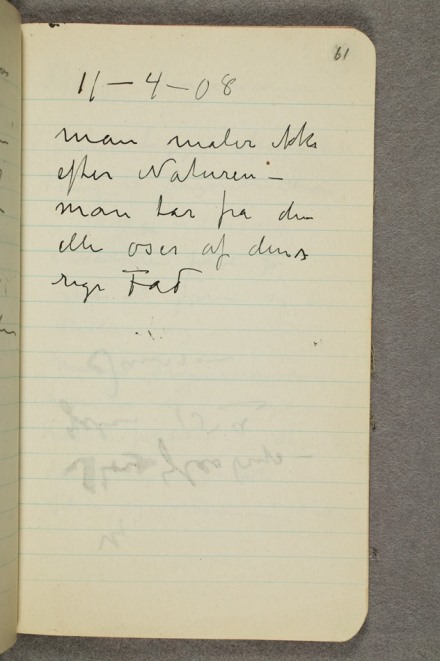 61
11 – 4 – 08
man maler ikke
efter Naturen –
man tar fra den
elle øser af dens
rige Fad